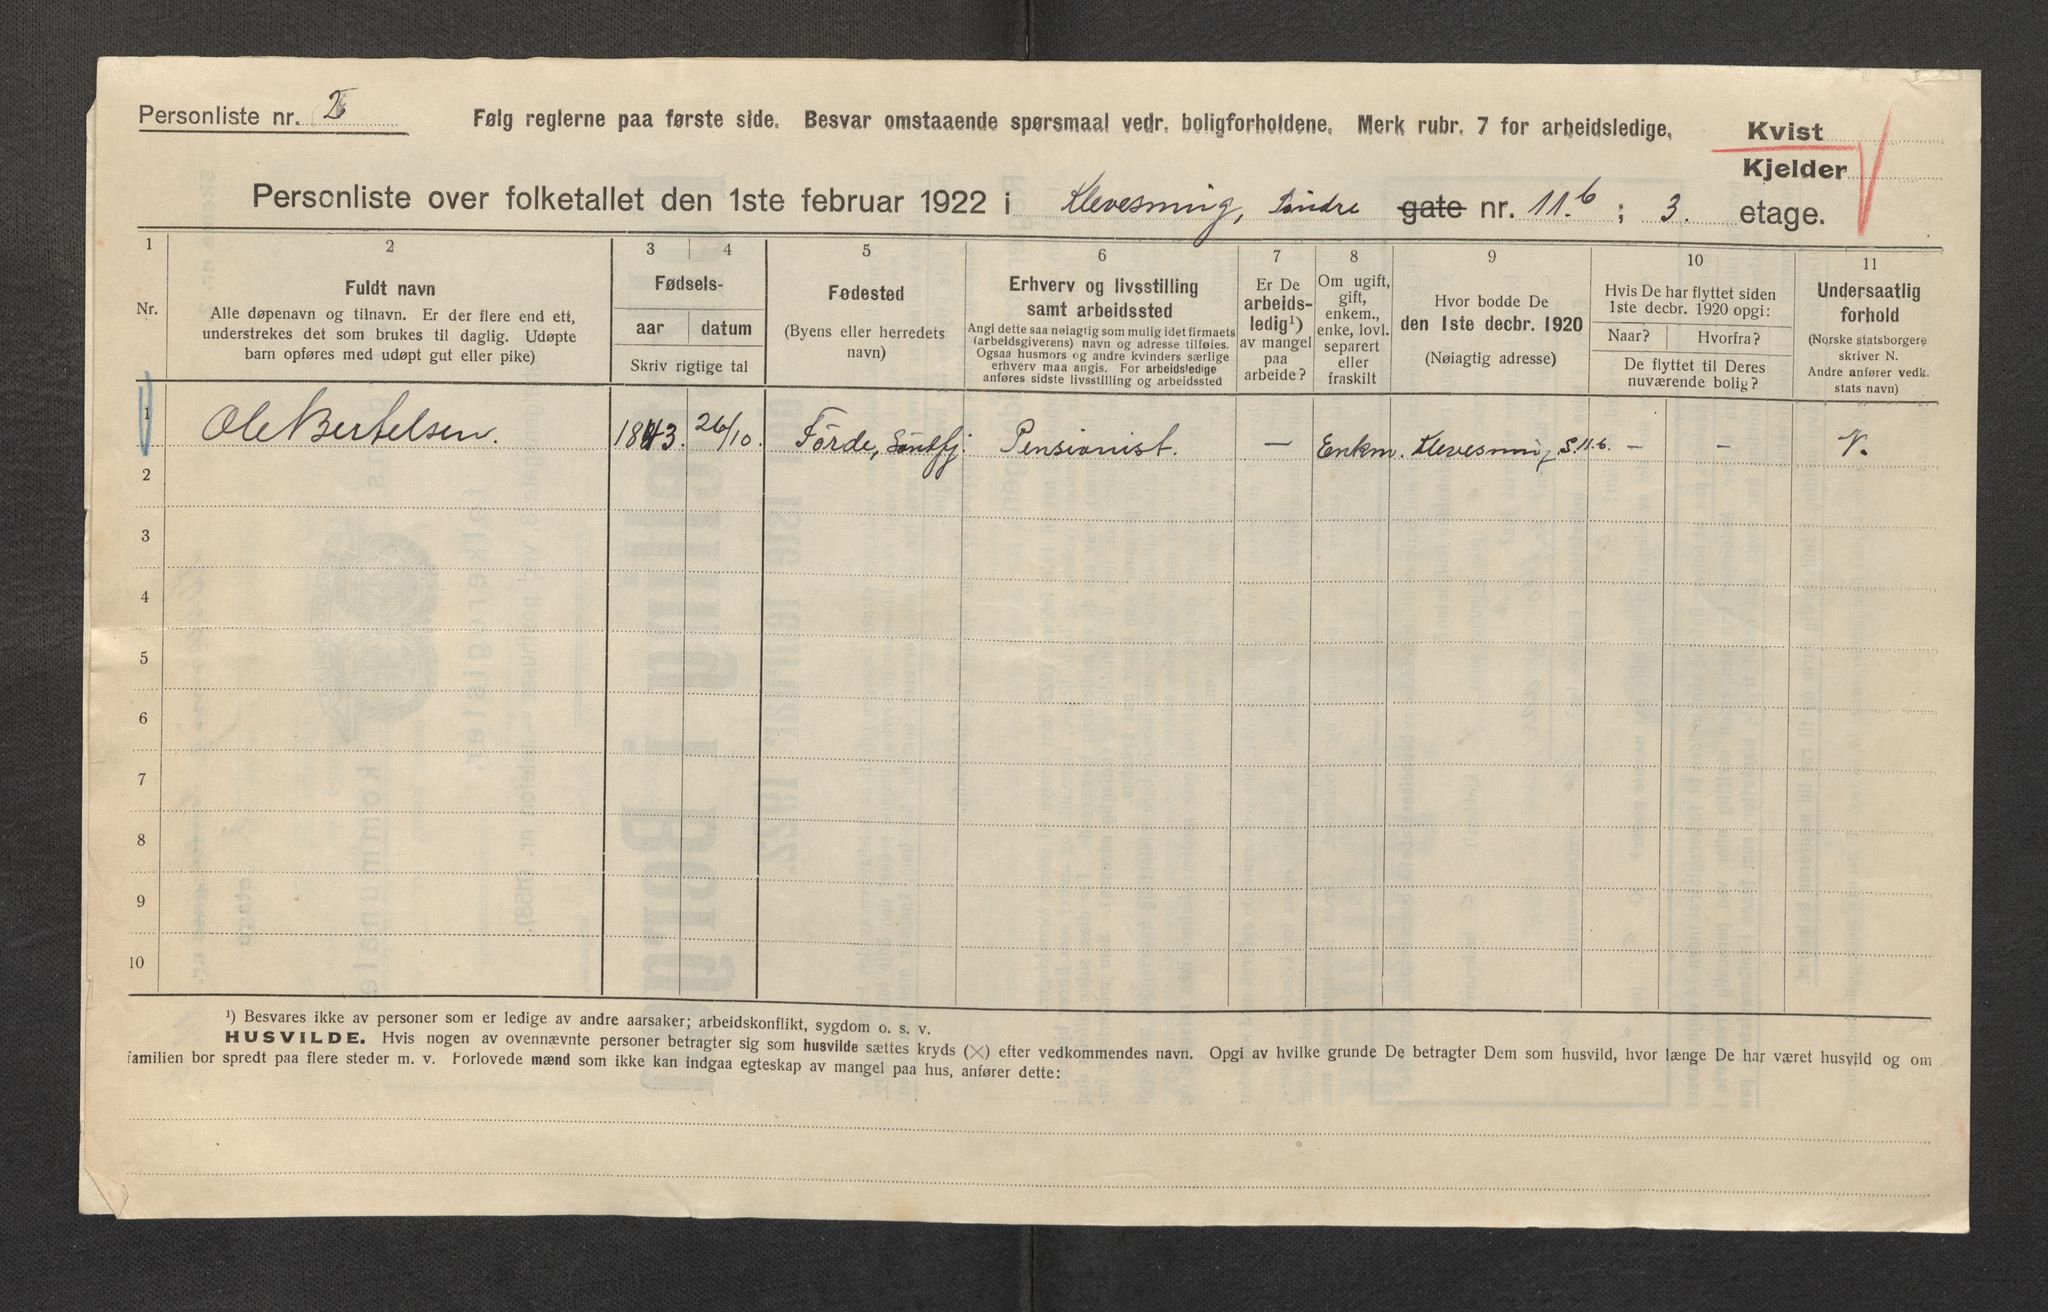 Personliste nr.
Følg reglerne paa første side. Besvar omstaaende spørsmaal vedr. boligforholdene. Merk rubr. 7 for arbeidsledige.
Kvist
Kjelder
Personliste over folketallet den 1ste februar 1922 i Klevesmug, Søndre gate nr. 11.b ; 3. etage.
1 2 3 4 5 6 7 8 9 10 11
Nr.
Fuldt navn
Alle døpenavn og tilnavn. Er der flere end ett,
understrekes det som brukes til daglig. Udøpte
barn opføres med udøpt gut eller pike)
Fødsels-
aar datum
Skriv rigtige tal
Fødested
(Byens eller herredets
navn)
Erhverv og livsstilling
samt arbeidssted
Angi dette saa nøiagtig som mulig idet firmaets
(arbeidsgiverens) navn og adresse tilføies.
Ogsaa husmors og andre kvinders særlige
erhverv maa angis. For arbeidsledige
anføres sidste livsstilling og arbeidssted
Er De
arbeids-
ledig¹)
av mangel
paa
arbeide?
Om ugift,
gift,
enkem.,
enke, lovl.
separert
eller
fraskilt
Hvor bodde De
den 1ste decbr. 1920
(Nøiagtig adresse)
Hvis De har flyttet siden
1ste decbr. 1920 opgi:
Naar? Hvorfra?
De flyttet til Deres
nuværende bolig?
Undersaatlig
forhold
(Norske statsborgere
skriver N.
Andre anfører vedk.
stats navn)
1 Ole Bertelsen. 1843. 26/10. Förde, Söndfj. Pensionist. — Enkm. Klevesmug, S. 11.b. — — N.
2
3
4
5
6
7
8
9
10
¹) Besvares ikke av personer som er ledige av andre aarsaker; arbeidskonflikt, sygdom o. s. v.
HUSVILDE. Hvis nogen av ovennævnte personer betragter sig som husvilde sættes kryds (×) efter vedkommendes navn. Opgi av hvilke grunde De betragter Dem som husvild, hvor længe De har været husvild og om
familien bor spredt paa flere steder m. v. Forlovede mænd som ikke kan indgaa egteskap av mangel paa hus, anfører dette: